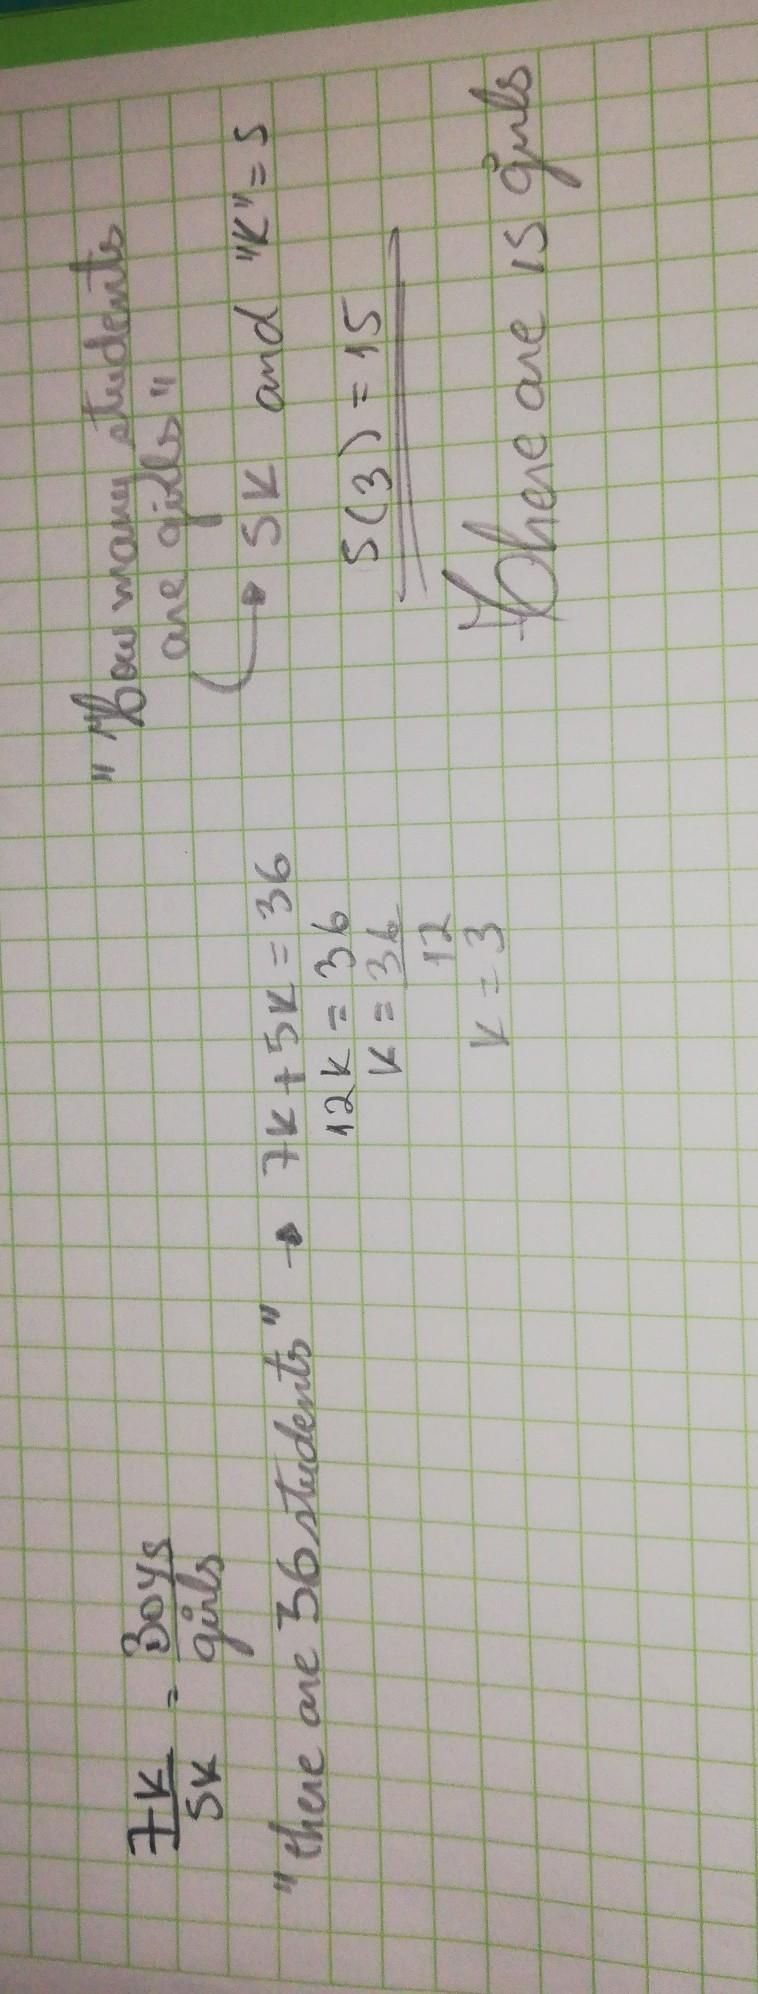 7K/5K = Boys/girls
"there are 36 students" → 7K + 5K = 36
12K = 36
K = 36/12
K = 3
"How many students
are girls"
→ 5K and "K" = 5
5(3) = 15
There are 15 girls